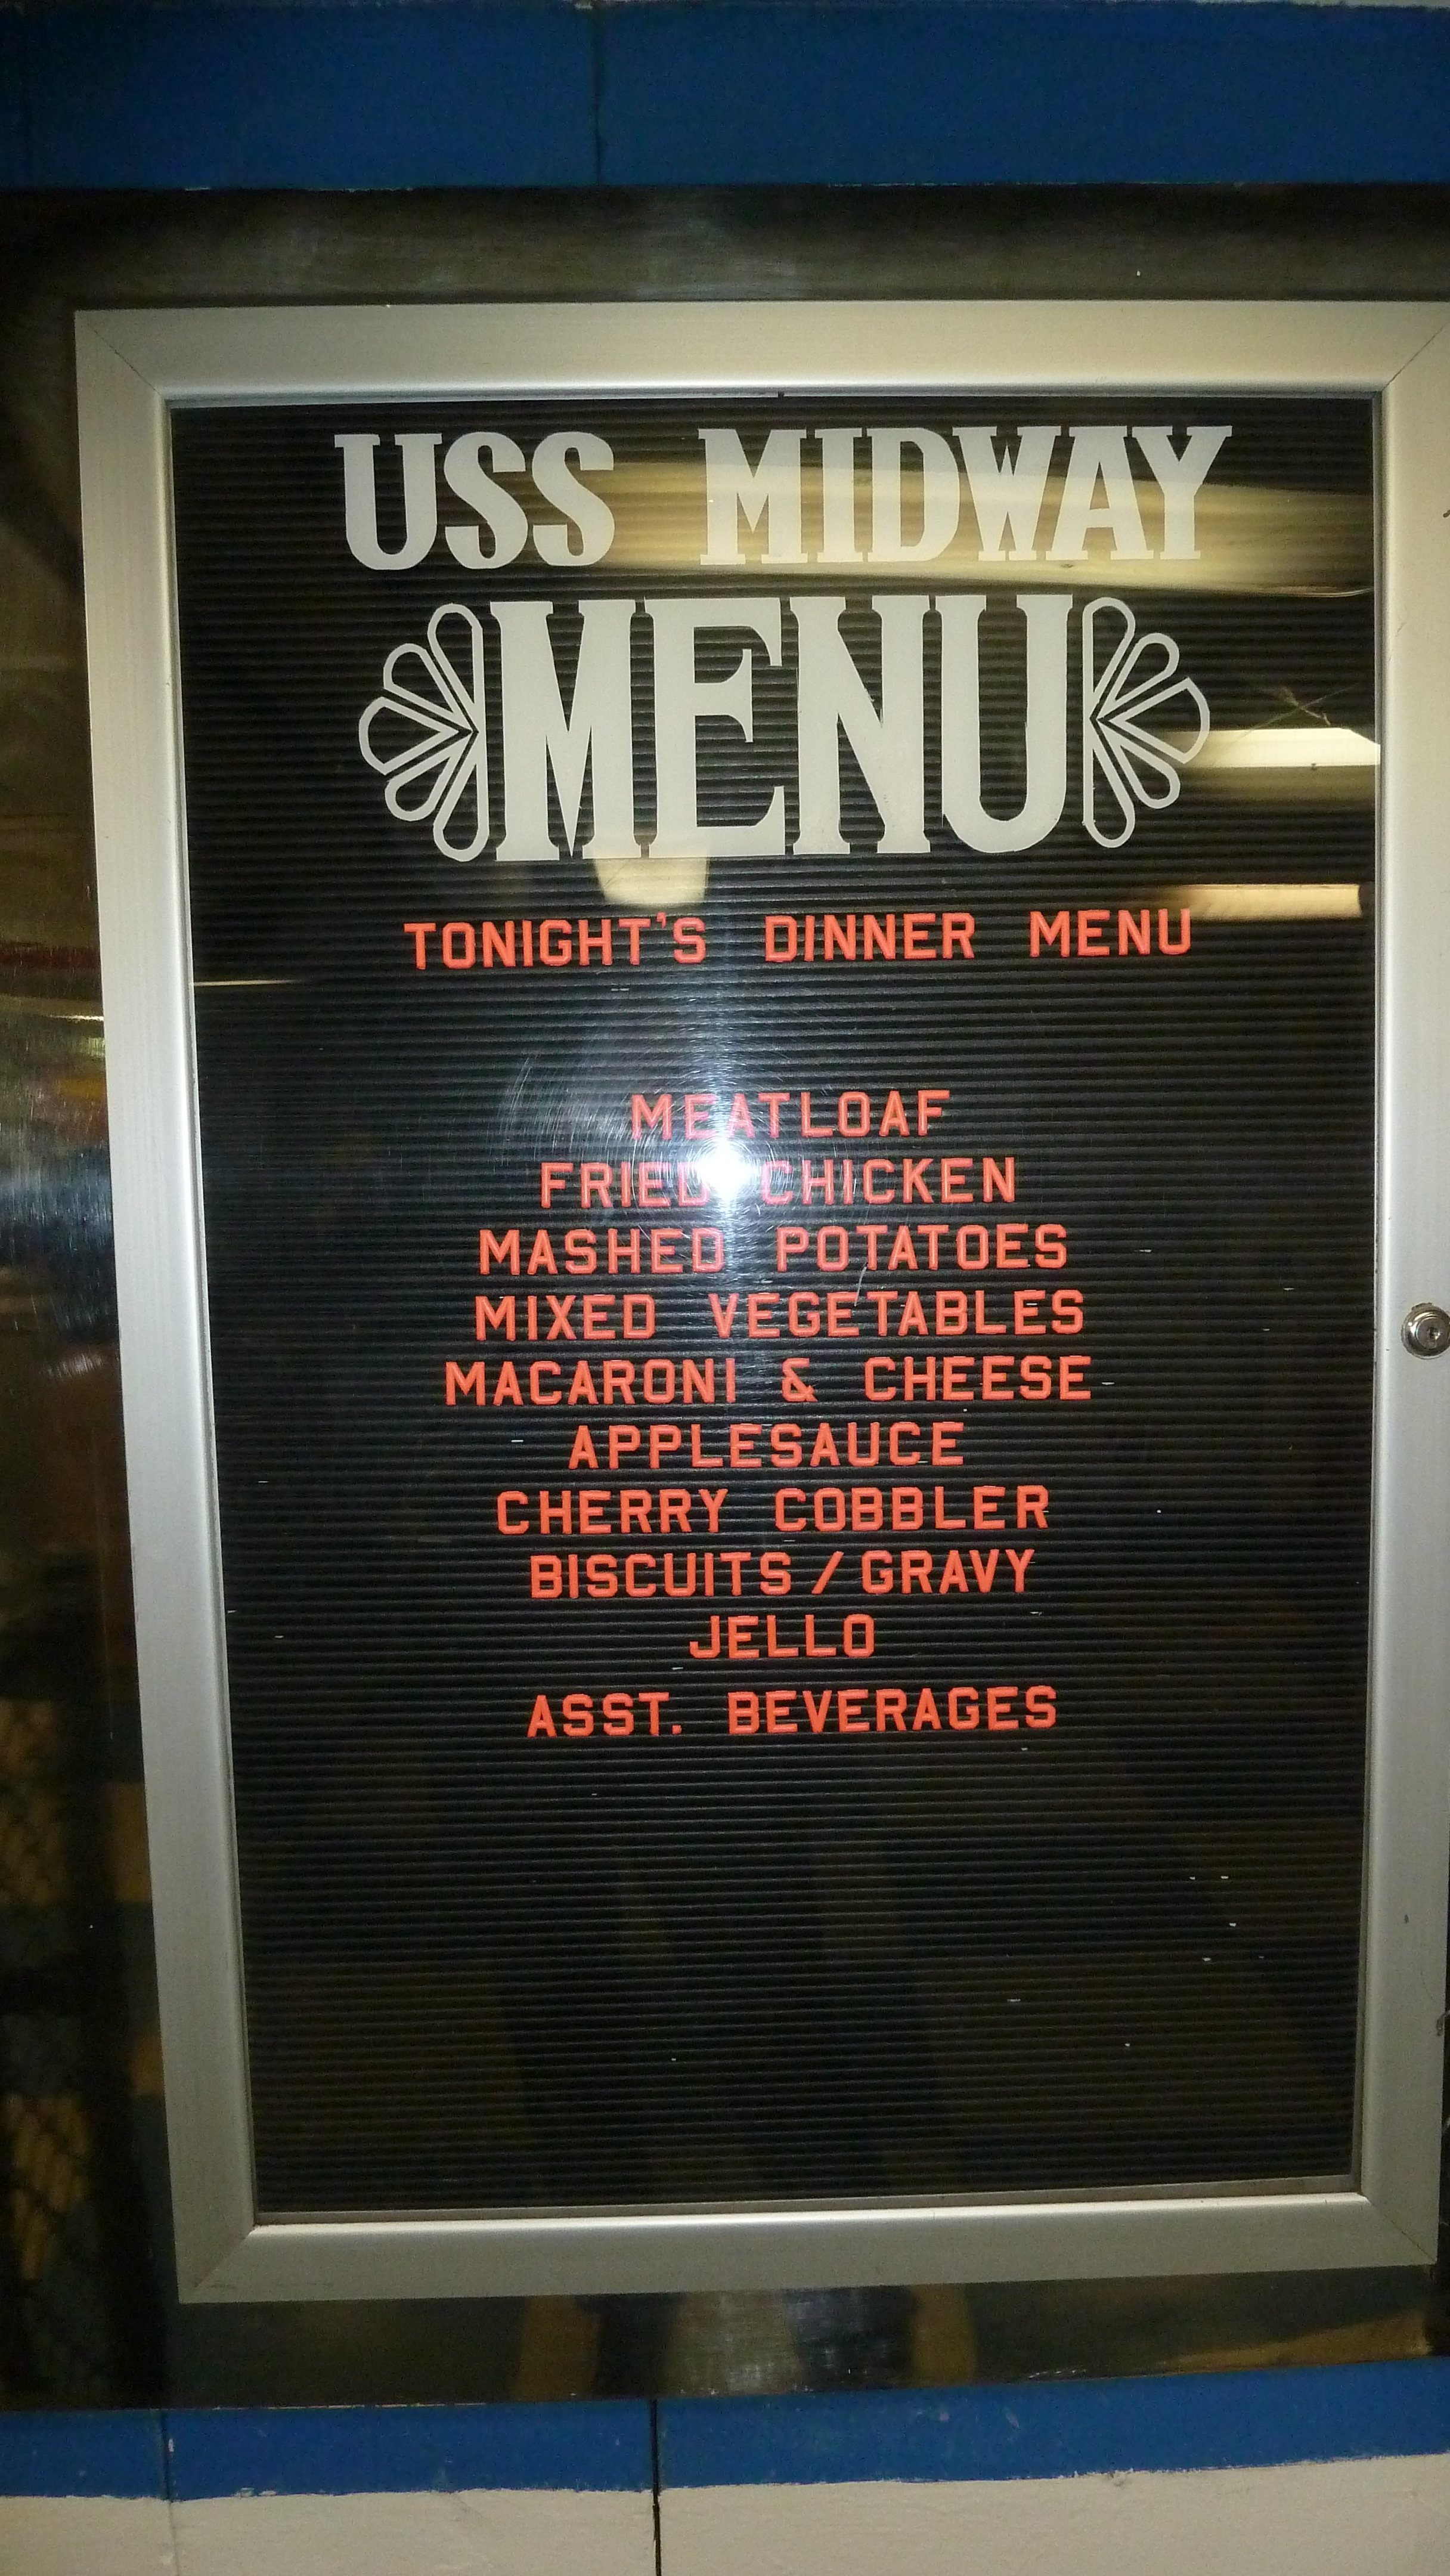 USS MIDWAY
MENU
TONIGHT'S DINNER MENU
MEATLOAF
FRIED CHICKEN
MASHED POTATOES
MIXED VEGETABLES
MACARONI & CHEESE
APPLESAUCE
CHERRY COBBLER
BISCUITS / GRAVY
JELLO
ASST. BEVERAGES